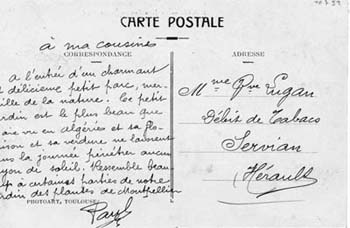 CARTE POSTALE
à ma cousine
CORRESPONDANCE
ADRESSE
a l'entrée d'un charmant
délicieux petit parc, mer-
ille de la nature. Ce petit
rdin est le plus beau que
aie vu en algérie et sa flo
ison et sa verdure ne laissent
la journée pénétrer aucun
yon de soleil. Ressemble beau
p à certaines parties de notre
rdin des plantes de Montpellier
PHOTOART, TOULOUSE
Mme Vve Lugan
Débit de Tabacs
Servian
Hérault